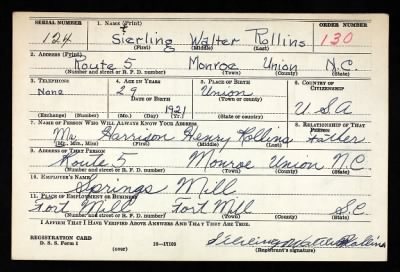 SERIAL NUMBER 1. NAME (Print) ORDER NUMBER
124 Sterling Walter Rollins 130
(First) (Middle) (Last)
2. ADDRESS (Print)
Route 5 Monroe Union N.C.
(Number and street or R. F. D. number) (Town) (County) (State)
3. TELEPHONE 4. AGE IN YEARS 5. PLACE OF BIRTH 6. COUNTRY OF CITIZENSHIP
None 29 Union
DATE OF BIRTH (Town or county)
1921 U.S.A
(Exchange) (Number) (Mo.) (Day) (Yr.) (State or country)
7. NAME OF PERSON WHO WILL ALWAYS KNOW YOUR ADDRESS 8. RELATIONSHIP OF THAT PERSON
Mr. Garrison Henry Rollins Father
(Mr., Mrs., Miss) (First) (Middle) (Last)
9. ADDRESS OF THAT PERSON
Route 5 Monroe Union N.C
(Number and street or R. F. D. number) (Town) (County) (State)
10. EMPLOYER'S NAME
Springs Mill
11. PLACE OF EMPLOYMENT OR BUSINESS
Fort Mill Fort Mill S.C.
(Number and street or R. F. D. number) (Town) (County) (State)
I AFFIRM THAT I HAVE VERIFIED ABOVE ANSWERS AND THAT THEY ARE TRUE.
REGISTRATION CARD
D. S. S. Form 1 (over) 16—17105 Sterling Walter Rollins
(Registrant's signature)